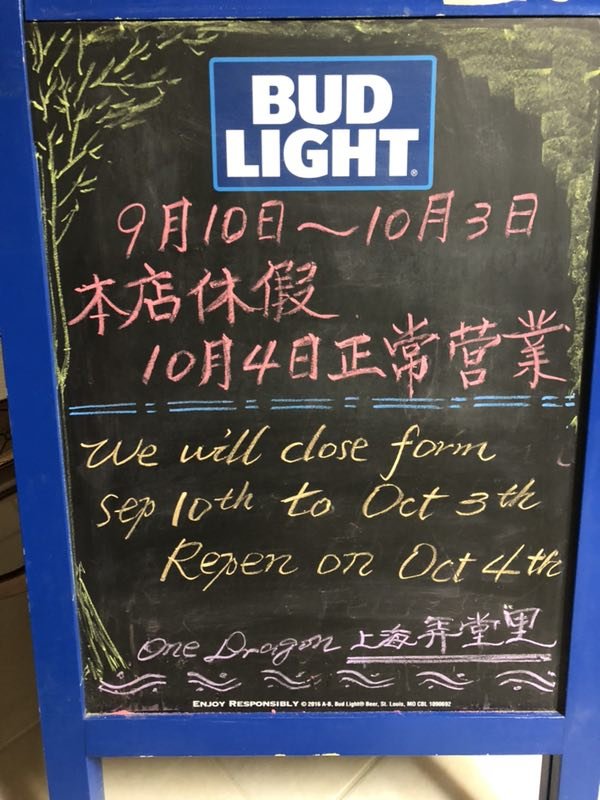 BUD
LIGHT
9月10日~10月3日
本店休假
10月4日正常営業
We will close form
Sep 10th to Oct 3th
Repen on Oct 4th
One Dragon 上海弄堂里
ENJOY RESPONSIBLY © 2016 A-B, Bud Light® Beer, St. Louis, MO CBL 1000692